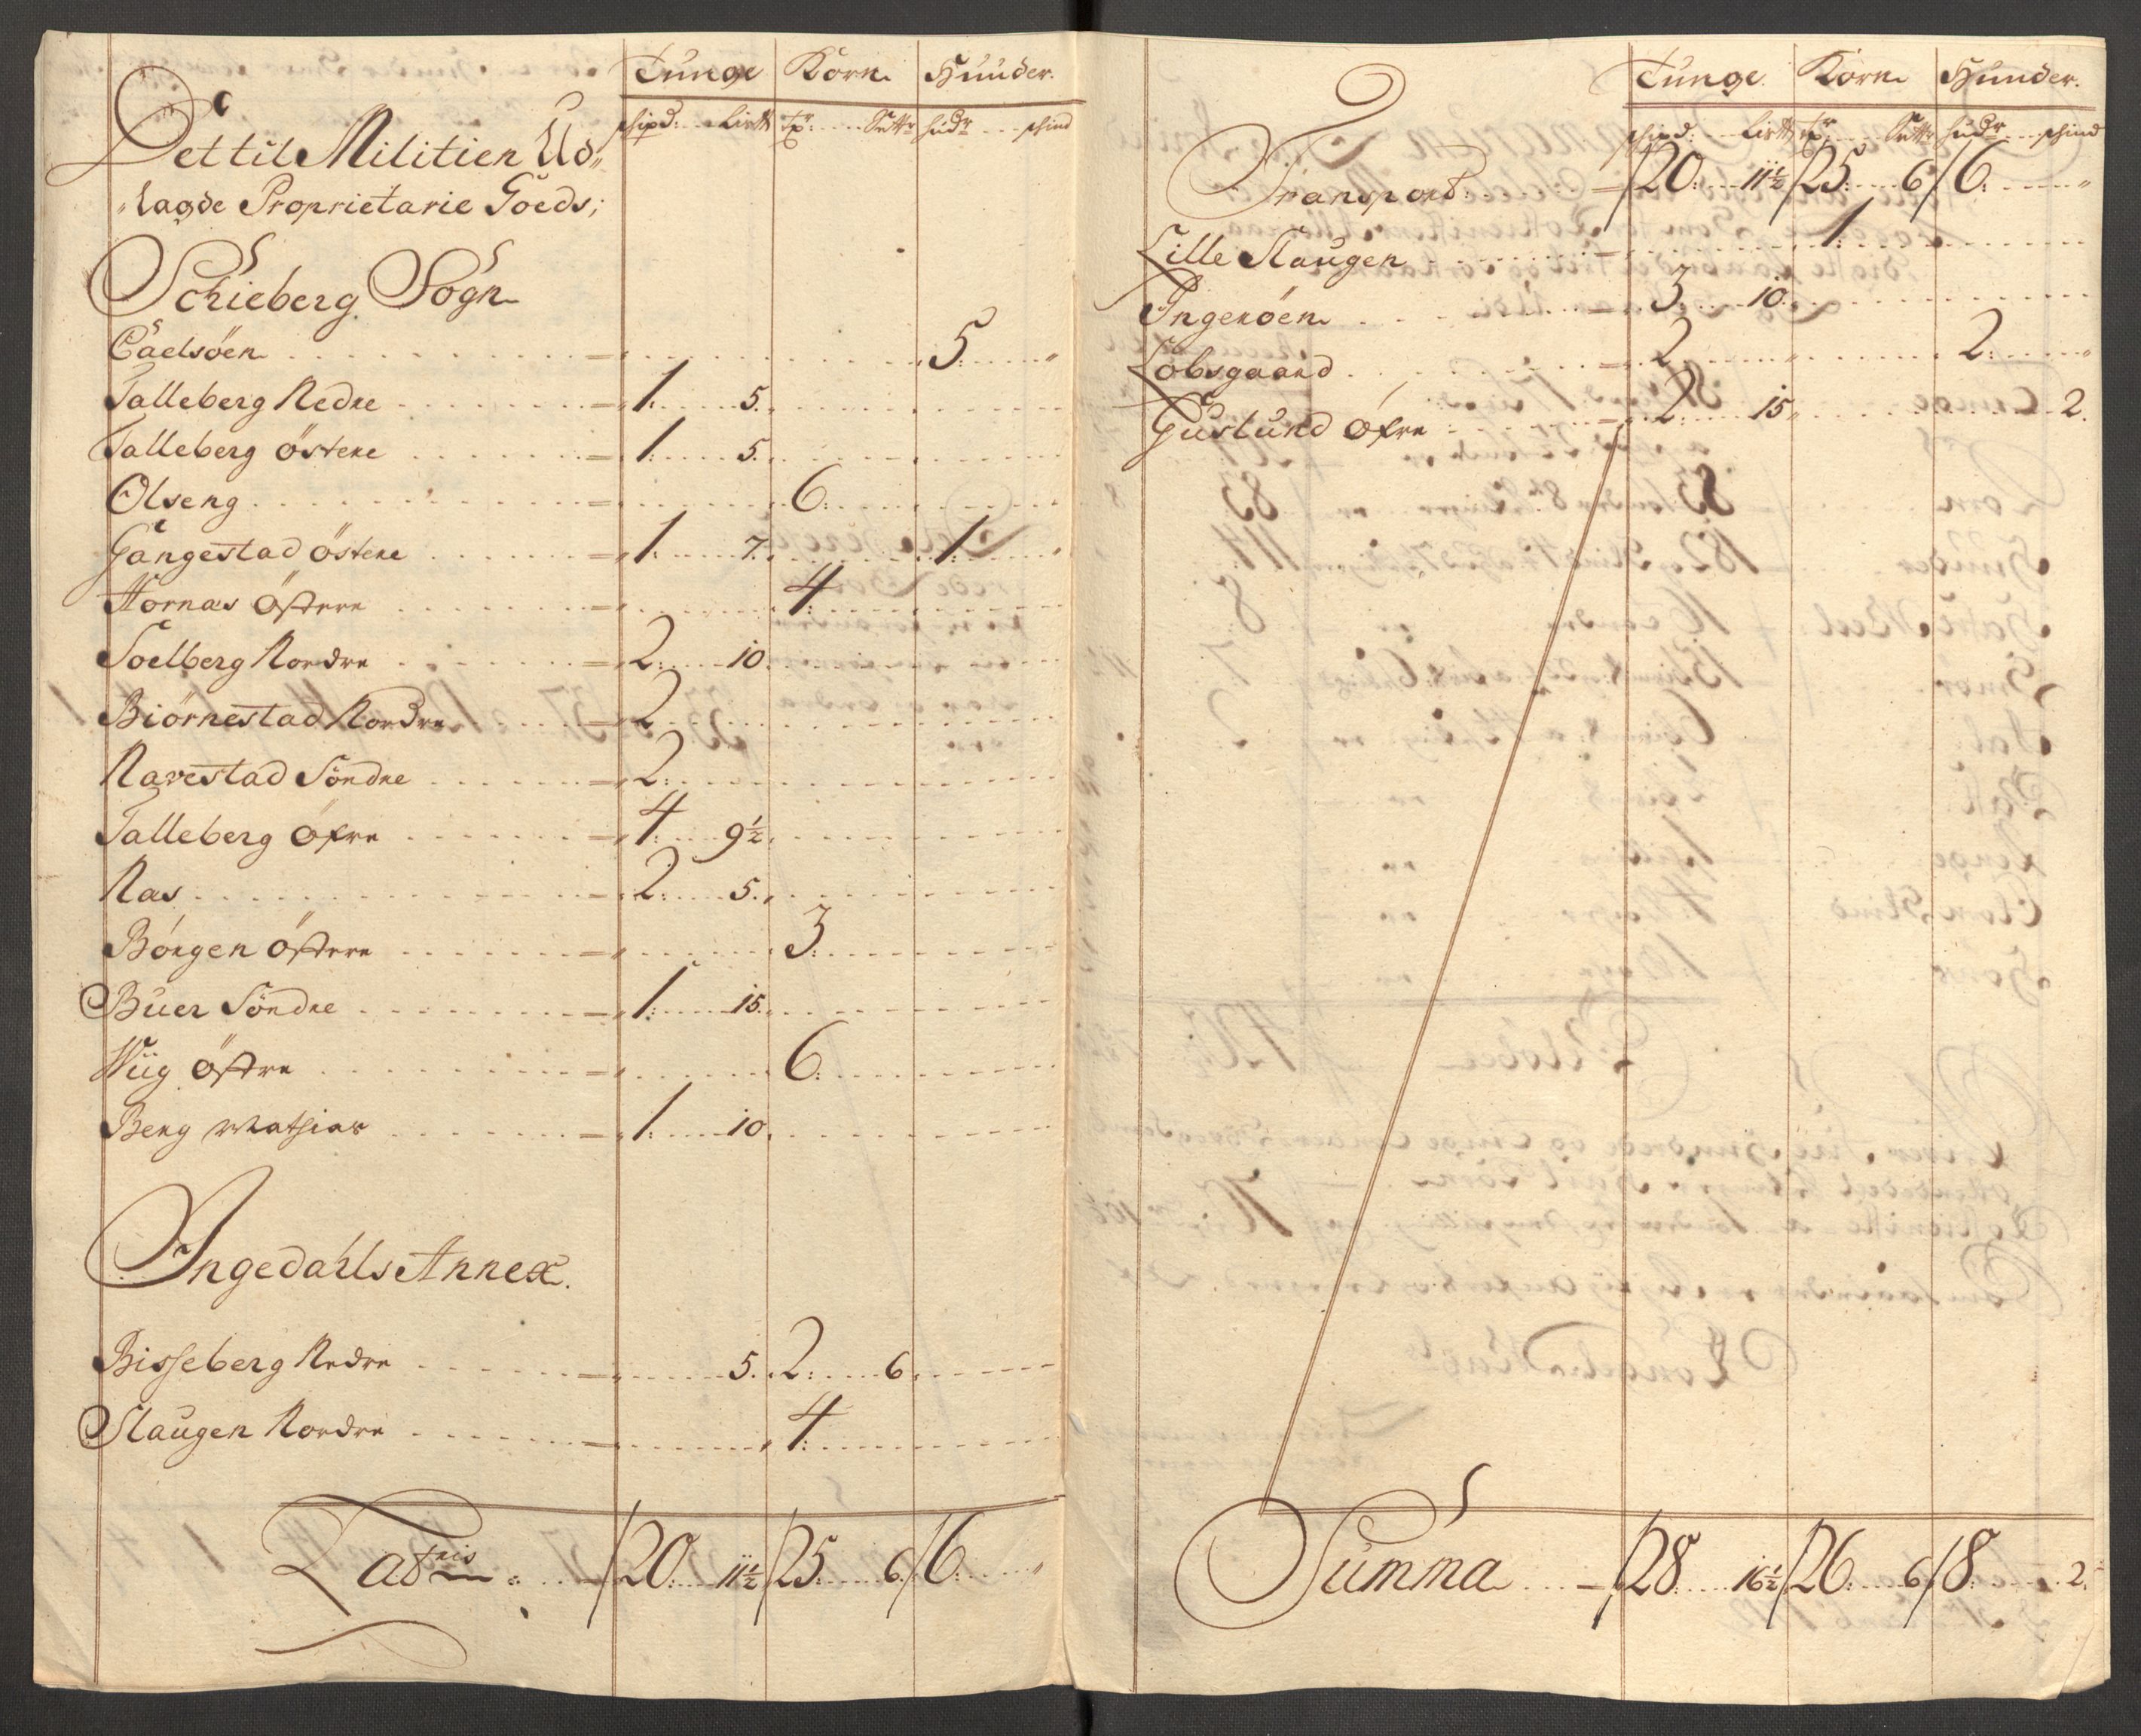 Tunge Korn Huuder.
schipd: Lispd tr: Settr hudr schind
Det til Militien Ud„
„lagde Proprietarie Goeds;
Schieberg Sogn
Caelsöen 5:
Talleberg Nedre 1: 5.
Talleberg östere 1: 5.
Olseng 6:
Gangestad östere 1: 7. 1:
Hornæs östere 4:
Soelberg Nordre 2: 10.
Biörnestad Nordre 2:
Navestad Söndre 2:
Talleberg öfre 4: 9½
Næs 2: 5.
Börgen östere 3:
Buer Söndre 1: 15.
Wiig östre 6:
Berg Mathias 1: 10.
Ingedahls Annex.
Bisseberg Nedre 5. 2: 6.
Slaugen Nordre 4:
Latris 20: 11½ 25: 6. 6:
Tunge Korn Hunder.
schipd: Lispd tr: Settr hudr schind
Transport 20: 11½ 25: 6 6:
Lille Slaugen 1:
Ingeröen 3: 10.
Löbsgaard 2: 2:
Guslund öfre 2: 15 2.
Summa 28: 16½ 26: 6 8: 2.